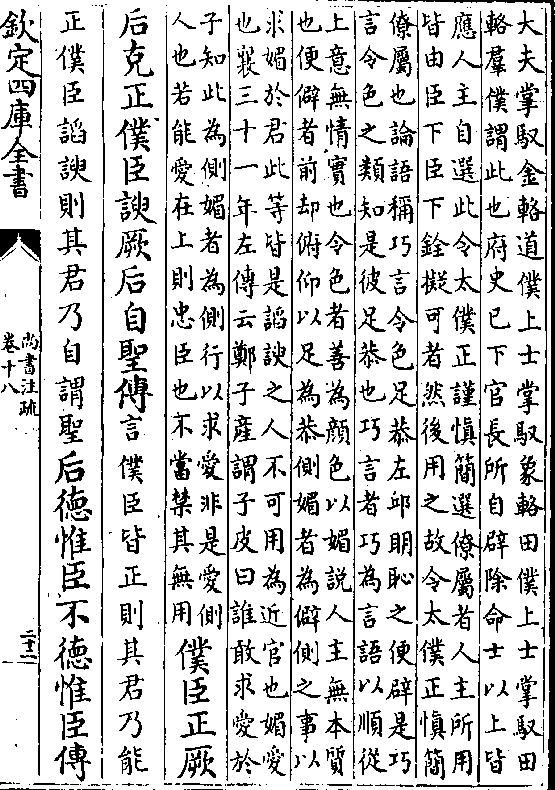 大夫掌馭金輅道僕上士掌馭象輅田僕上士掌馭田
輅羣僕謂此也府史已下官長所自辟除命士以上皆
應人主自選此令太僕正謹慎簡選僚屬者人主所用
皆由臣下臣下銓擬可者然後用之故令太僕正慎簡
僚屬也論語稱巧言令色足恭左邱明恥之便辟是巧
言令色之類知是彼足恭也巧言者巧為言語以順從
上意無情實也令色者善為顔色以媚說人主無本質
也便僻者前却俯仰以足為恭側媚者為僻側之事以
求媚於君此等皆是謟諛之人不可用為近官也媚愛
也襄三十一年左傳云鄭子産謂子皮曰誰敢求愛於
子知此為側媚者為側行以求愛非是愛側
人也若能愛在上則忠臣也不當禁其無用
僕臣正厥
后克正僕臣諛厥后自聖傳言僕臣皆正則其君乃能
正僕臣謟諛則其君乃自謂聖后德惟臣不德惟臣傳
欽定四庫全書
尚書注疏
卷十八
二十二